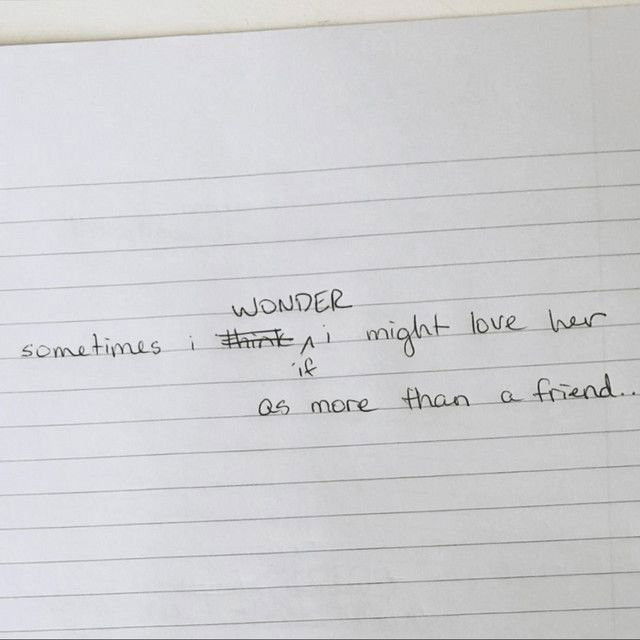 WONDER
sometimes i think i might love her
if
as more than a friend..